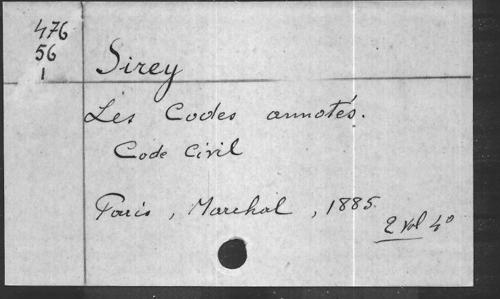 476
56
1
Sirey
Les Codes annotés.
Code Civil
Paris, Marchal, 1885.
2 vol 4°